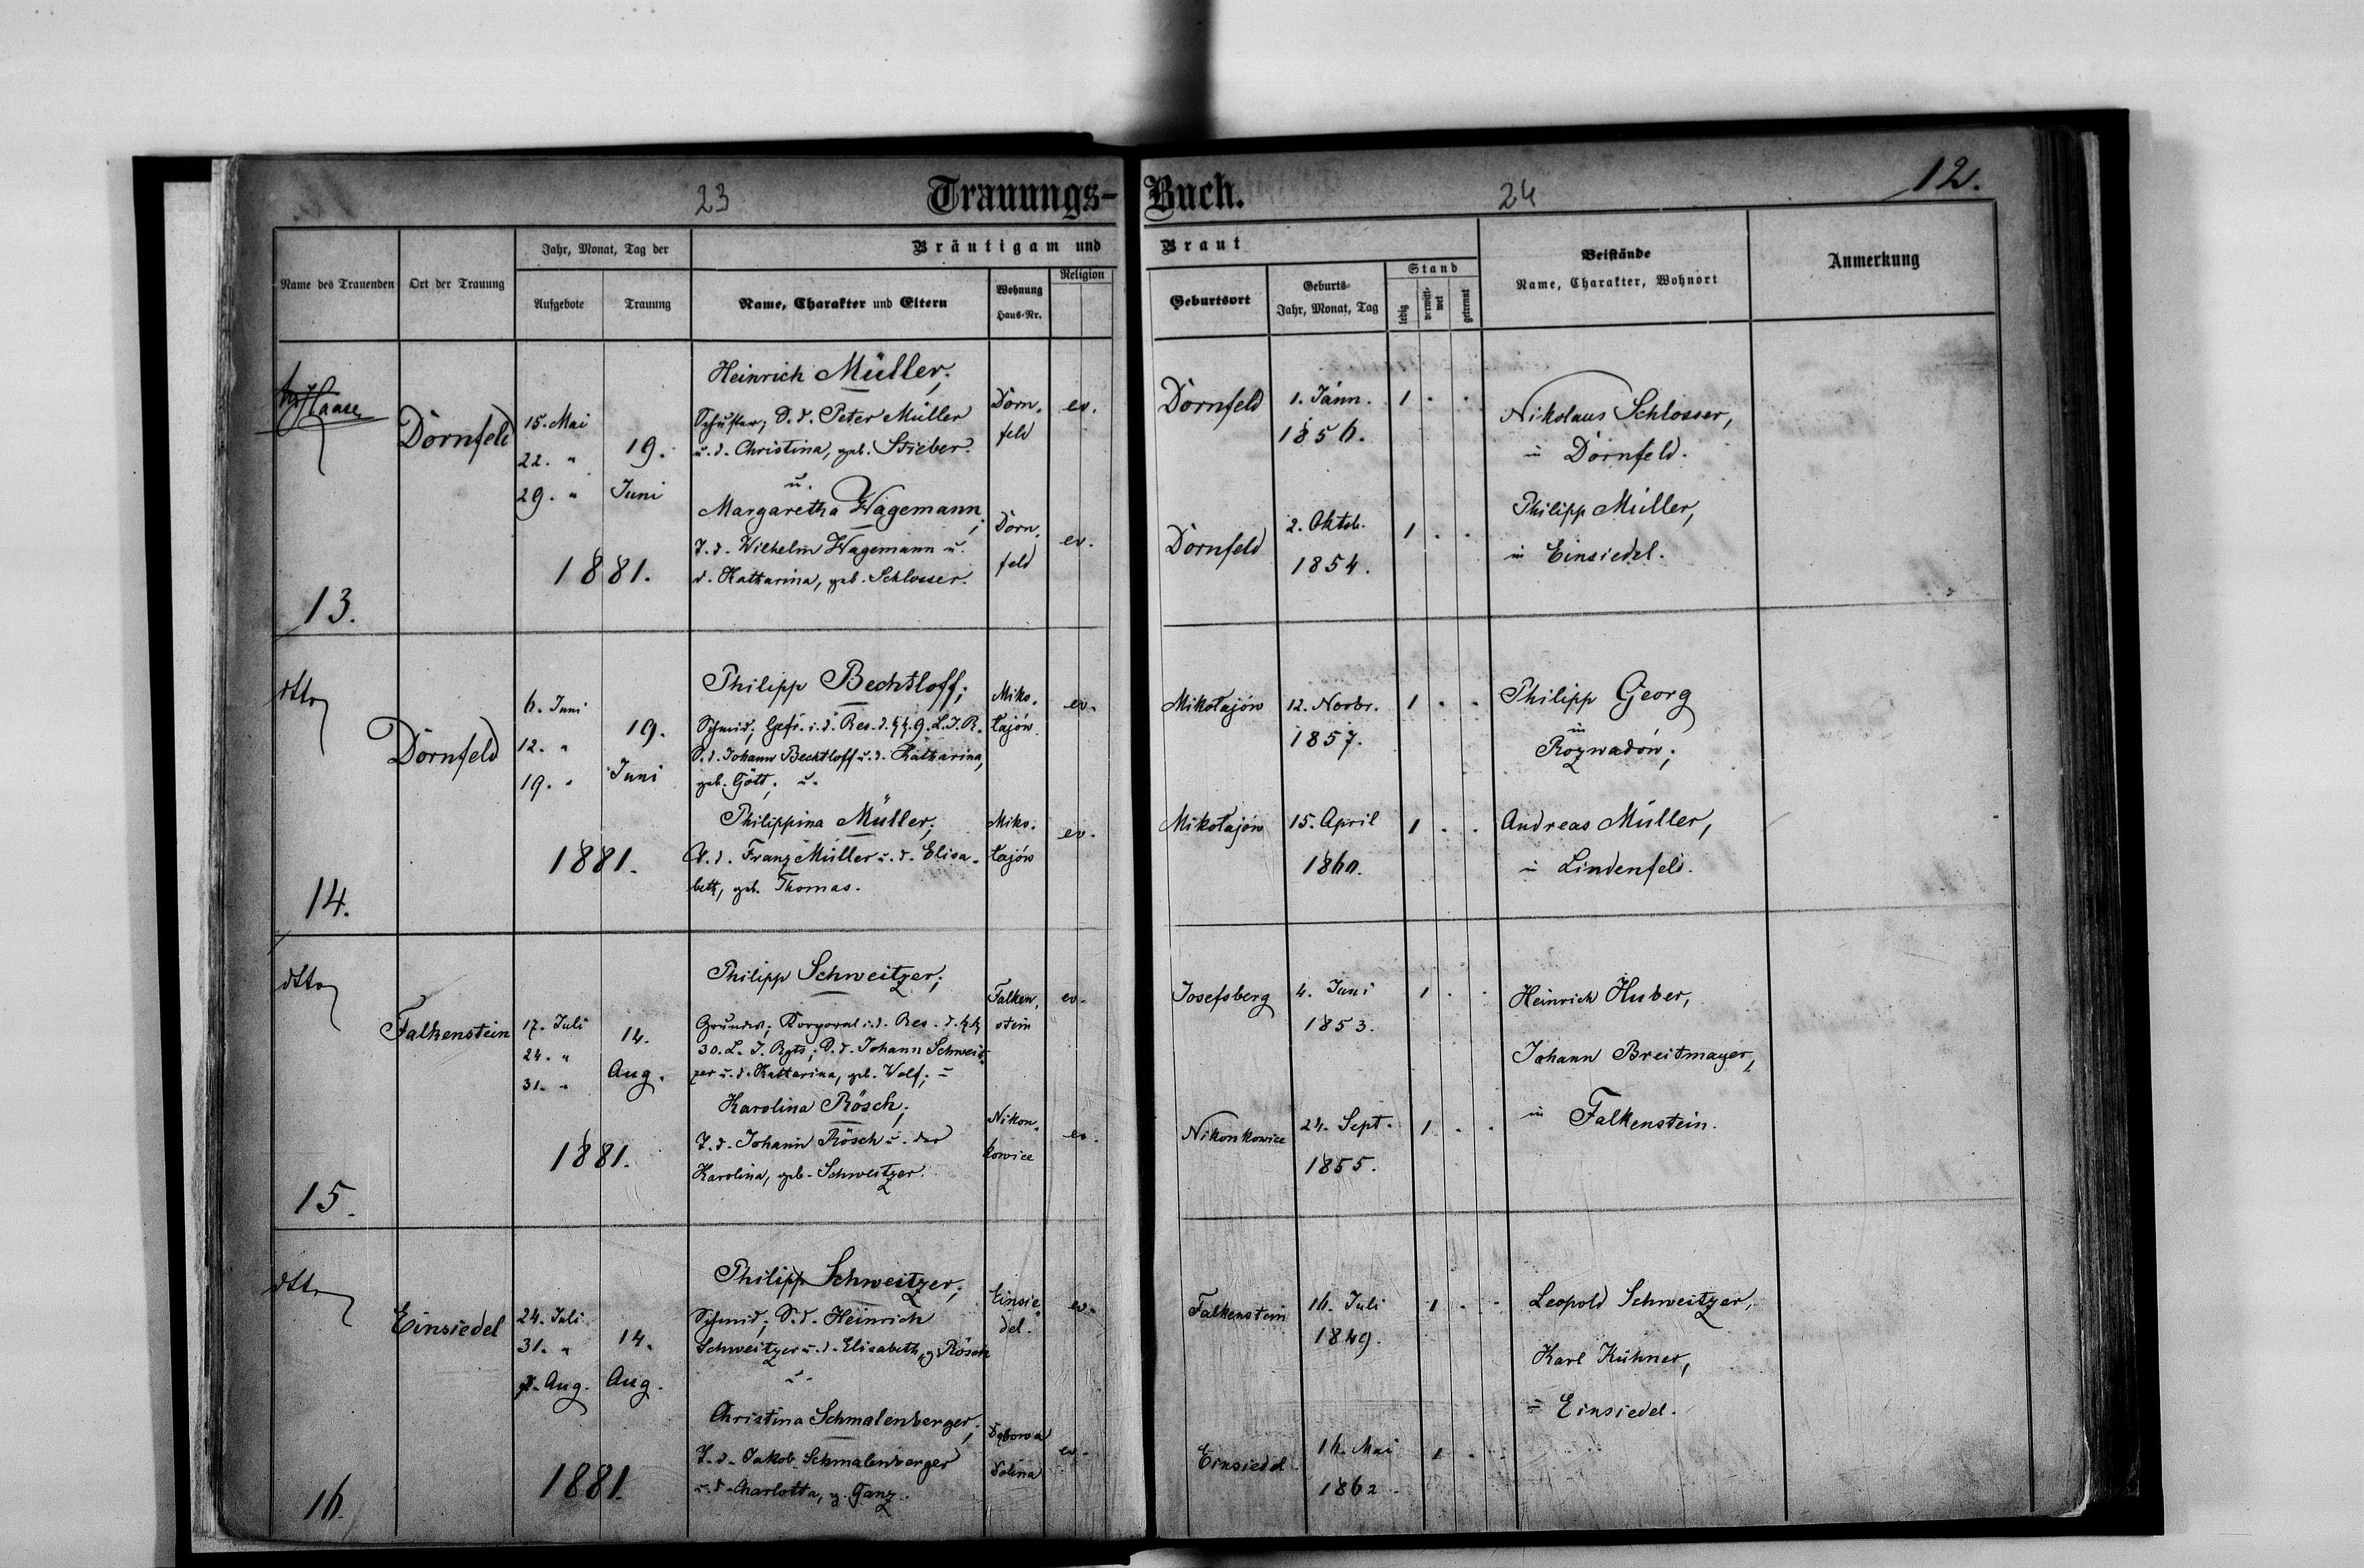 23
Trauungs-Buch.
24
12.
Name des Trauenden
Ort der Trauung
Jahr, Monat, Tag der
Aufgebote
Trauung
Bräutigam und Braut
Name, Charakter und Eltern
Wohnung
Haus-Nr.
Religion
Geburtsort
Geburts-
Jahr, Monat, Tag
Stand
ledig
verwitt-
wet
getrennt
Beistände
Name, Charakter, Wohnort
Anmerkung
Haase
13.
Dornfeld
15. Mai
22. "
29. "
19.
Juni
1881.
Heinrich Müller;
Schuster; S. d. Peter Müller
u. d. Christina, geb. Stieber.
u.
Margaretha Wagemann;
T. d. Wilhelm Wagemann u.
d. Katharina, geb. Schlosser.
Dorn-
feld
ev.
Dorn-
feld
ev.
Dornfeld
1. Jänn.
1856.
1 . .
Dornfeld
2. Oktob.
1854.
1 . .
Nikolaus Schlosser,
in Dornfeld.
Philipp Müller,
in Einsiedel.
dtto
14.
Dornfeld
6. Juni
12. "
19. "
19.
Juni
1881.
Philipp Bechtloff;
Schmid; Gefr. i. d. Res. d. k. k. 9. L. I. R.
S. d. Johann Bechtloff u. d. Katharina,
geb. Gött; u.
Philippina Müller;
T. d. Franz Müller u. d. Elisa-
beth, geb. Thomas.
Miko-
łajów
ev.
Miko-
łajów
ev.
Mikołajów
12. Novbr.
1857.
1 . .
Mikołajów
15. April
1860.
1 . .
Philipp Georg
in
Rozwadów;
Andreas Müller,
in Lindenfeld.
dtto
15.
Falkenstein
17. Juli
24. "
31. "
14.
Aug.
1881.
Philipp Schweitzer;
Grundw; Korporal i. d. Res. d. k. k.
30. L. I. Rgts; S. d. Johann Schweit-
zer u. d. Katharina, geb. Wolf; u.
Karolina Rösch;
T. d. Johann Rösch u. der
Karolina, geb. Schweitzer.
Falken-
stein
ev.
Nikon-
kowice
ev.
Josefsberg
4. Juni
1853.
1 . .
Nikonkowice
24. Sept.
1855.
1 . .
Heinrich Huber,
Johann Breitmayer,
in Falkenstein.
dtto
16.
Einsiedel
24. Juli
31. "
7. Aug.
14.
Aug.
1881.
Philipp Schweitzer;
Schmid; S. d. Heinrich
Schweitzer u. d. Elisabeth, g. Rösch
u.
Christina Schmalenberger;
T. d. Jakob Schmalenberger
u. d. Charlotta, g. Ganz.
Einsie-
del.
ev.
Dąbowa
Dolina
ev.
Falkenstein
16. Juli
1849.
1 . .
Einsiedel
16. Mai
1862.
1 . .
Leopold Schweitzer,
Karl Kühner,
in Einsiedel.